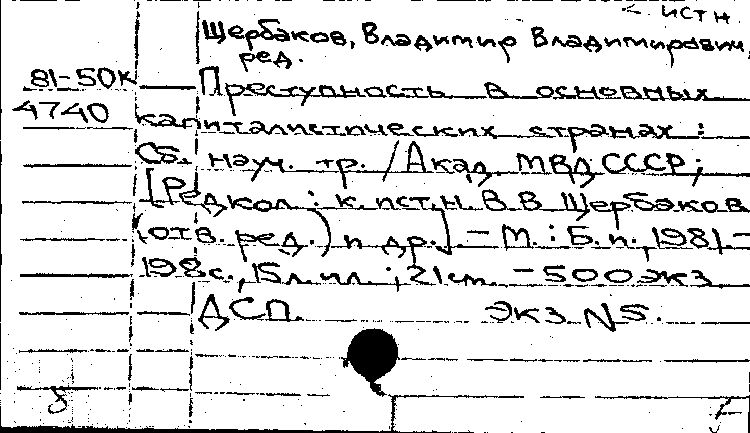 < ист н.
Щербаков, Владимир Владимирович,
ред.
81-50к Преступность в основных
4740 капиталистических странах :
Сб. науч. тр. / Акад. МВД СССР;
[Редкол.: к. ист. н. В.В Щербаков
(отв. ред.) и др.] - М. : Б. и., 1981 -
198с., 15л. ил. ; 21см. - 500экз
ДСП. Экз. N5.